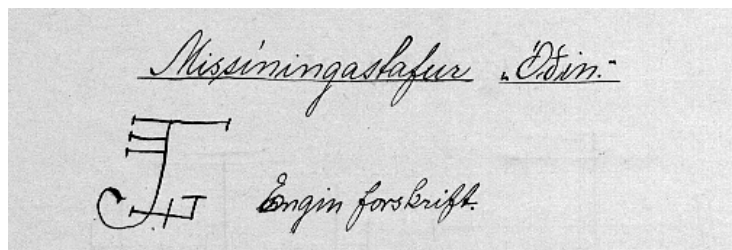 Missýningastafur „Óðin.“
Engin forskrift.